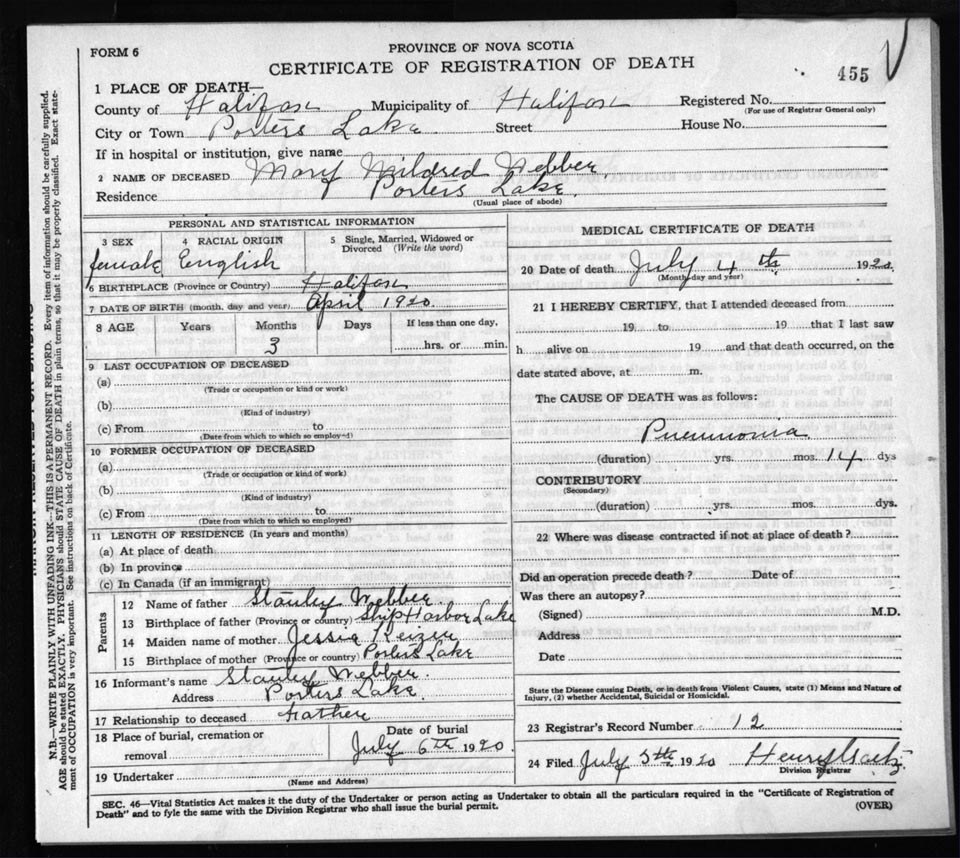 FORM 6
PROVINCE OF NOVA SCOTIA
CERTIFICATE OF REGISTRATION OF DEATH
455
1 PLACE OF DEATH—
County of Halifax Municipality of Halifax Registered No.
(For use of Registrar General only)
City or Town Porters Lake Street House No.
If in hospital or institution, give name
2 NAME OF DECEASED Mary Mildred Webber
Residence Porters Lake
(Usual place of abode)
PERSONAL AND STATISTICAL INFORMATION
3 SEX 4 RACIAL ORIGIN 5 Single, Married, Widowed or Divorced (Write the word)
female English
6 BIRTHPLACE (Province or Country) Halifax
7 DATE OF BIRTH (month, day and year) April 1920
8 AGE Years Months Days If less than one day,
3 hrs. or min.
9 LAST OCCUPATION OF DECEASED
(a)
(Trade or occupation or kind or work)
(b)
(Kind of industry)
(c) From to
(Date from which to which so employed)
10 FORMER OCCUPATION OF DECEASED
(a)
(Trade or occupation or kind of work)
(b)
(Kind of industry)
(c) From to
(Date from which to which so employed)
11 LENGTH OF RESIDENCE (In years and months)
(a) At place of death
(b) In province
(c) In Canada (if an immigrant)
Parents
12 Name of father Stanley Webber
13 Birthplace of father (Province or country) Ship Harbor Lake
14 Maiden name of mother Jessie Keizer
15 Birthplace of mother (Province or country) Porters Lake
16 Informant's name Stanley Webber
Address Porters Lake
17 Relationship to deceased Father
18 Place of burial, cremation or removal Date of burial
July 6th 1920
19 Undertaker
(Name and Address)
MEDICAL CERTIFICATE OF DEATH
20 Date of death July 4th 1920
(Month day and year)
21 I HEREBY CERTIFY, that I attended deceased from
19 to 19 that I last saw
h alive on 19 and that death occurred, on the
date stated above, at m.
The CAUSE OF DEATH was as follows:
Pneumonia
(duration) yrs. mos. 14 dys
CONTRIBUTORY
(Secondary)
(duration) yrs. mos. dys.
22 Where was disease contracted if not at place of death?
Did an operation precede death? Date of
Was there an autopsy?
(Signed) M.D.
Address
Date
State the Disease causing Death, or in death from Violent Causes, state (1) Means and Nature of
Injury, (2) whether Accidental, Suicidal or Homicidal.
23 Registrar's Record Number 12
24 Filed July 5th 1920 Henry
Division Registrar
SEC. 46—Vital Statistics Act makes it the duty of the Undertaker or person acting as Undertaker to obtain all the particulars required in the "Certificate of Registration of
Death" and to fyle the same with the Division Registrar who shall issue the burial permit.
(OVER)
MARGIN RESERVED FOR BINDING
N.B.—WRITE PLAINLY WITH UNFADING INK—THIS IS A PERMANENT RECORD. Every item of information should be carefully supplied.
AGE should be stated EXACTLY. PHYSICIANS should STATE CAUSE OF DEATH in plain terms, so that it may be properly classified. Exact state-
ment of OCCUPATION is very important. See instructions on back of Certificate.